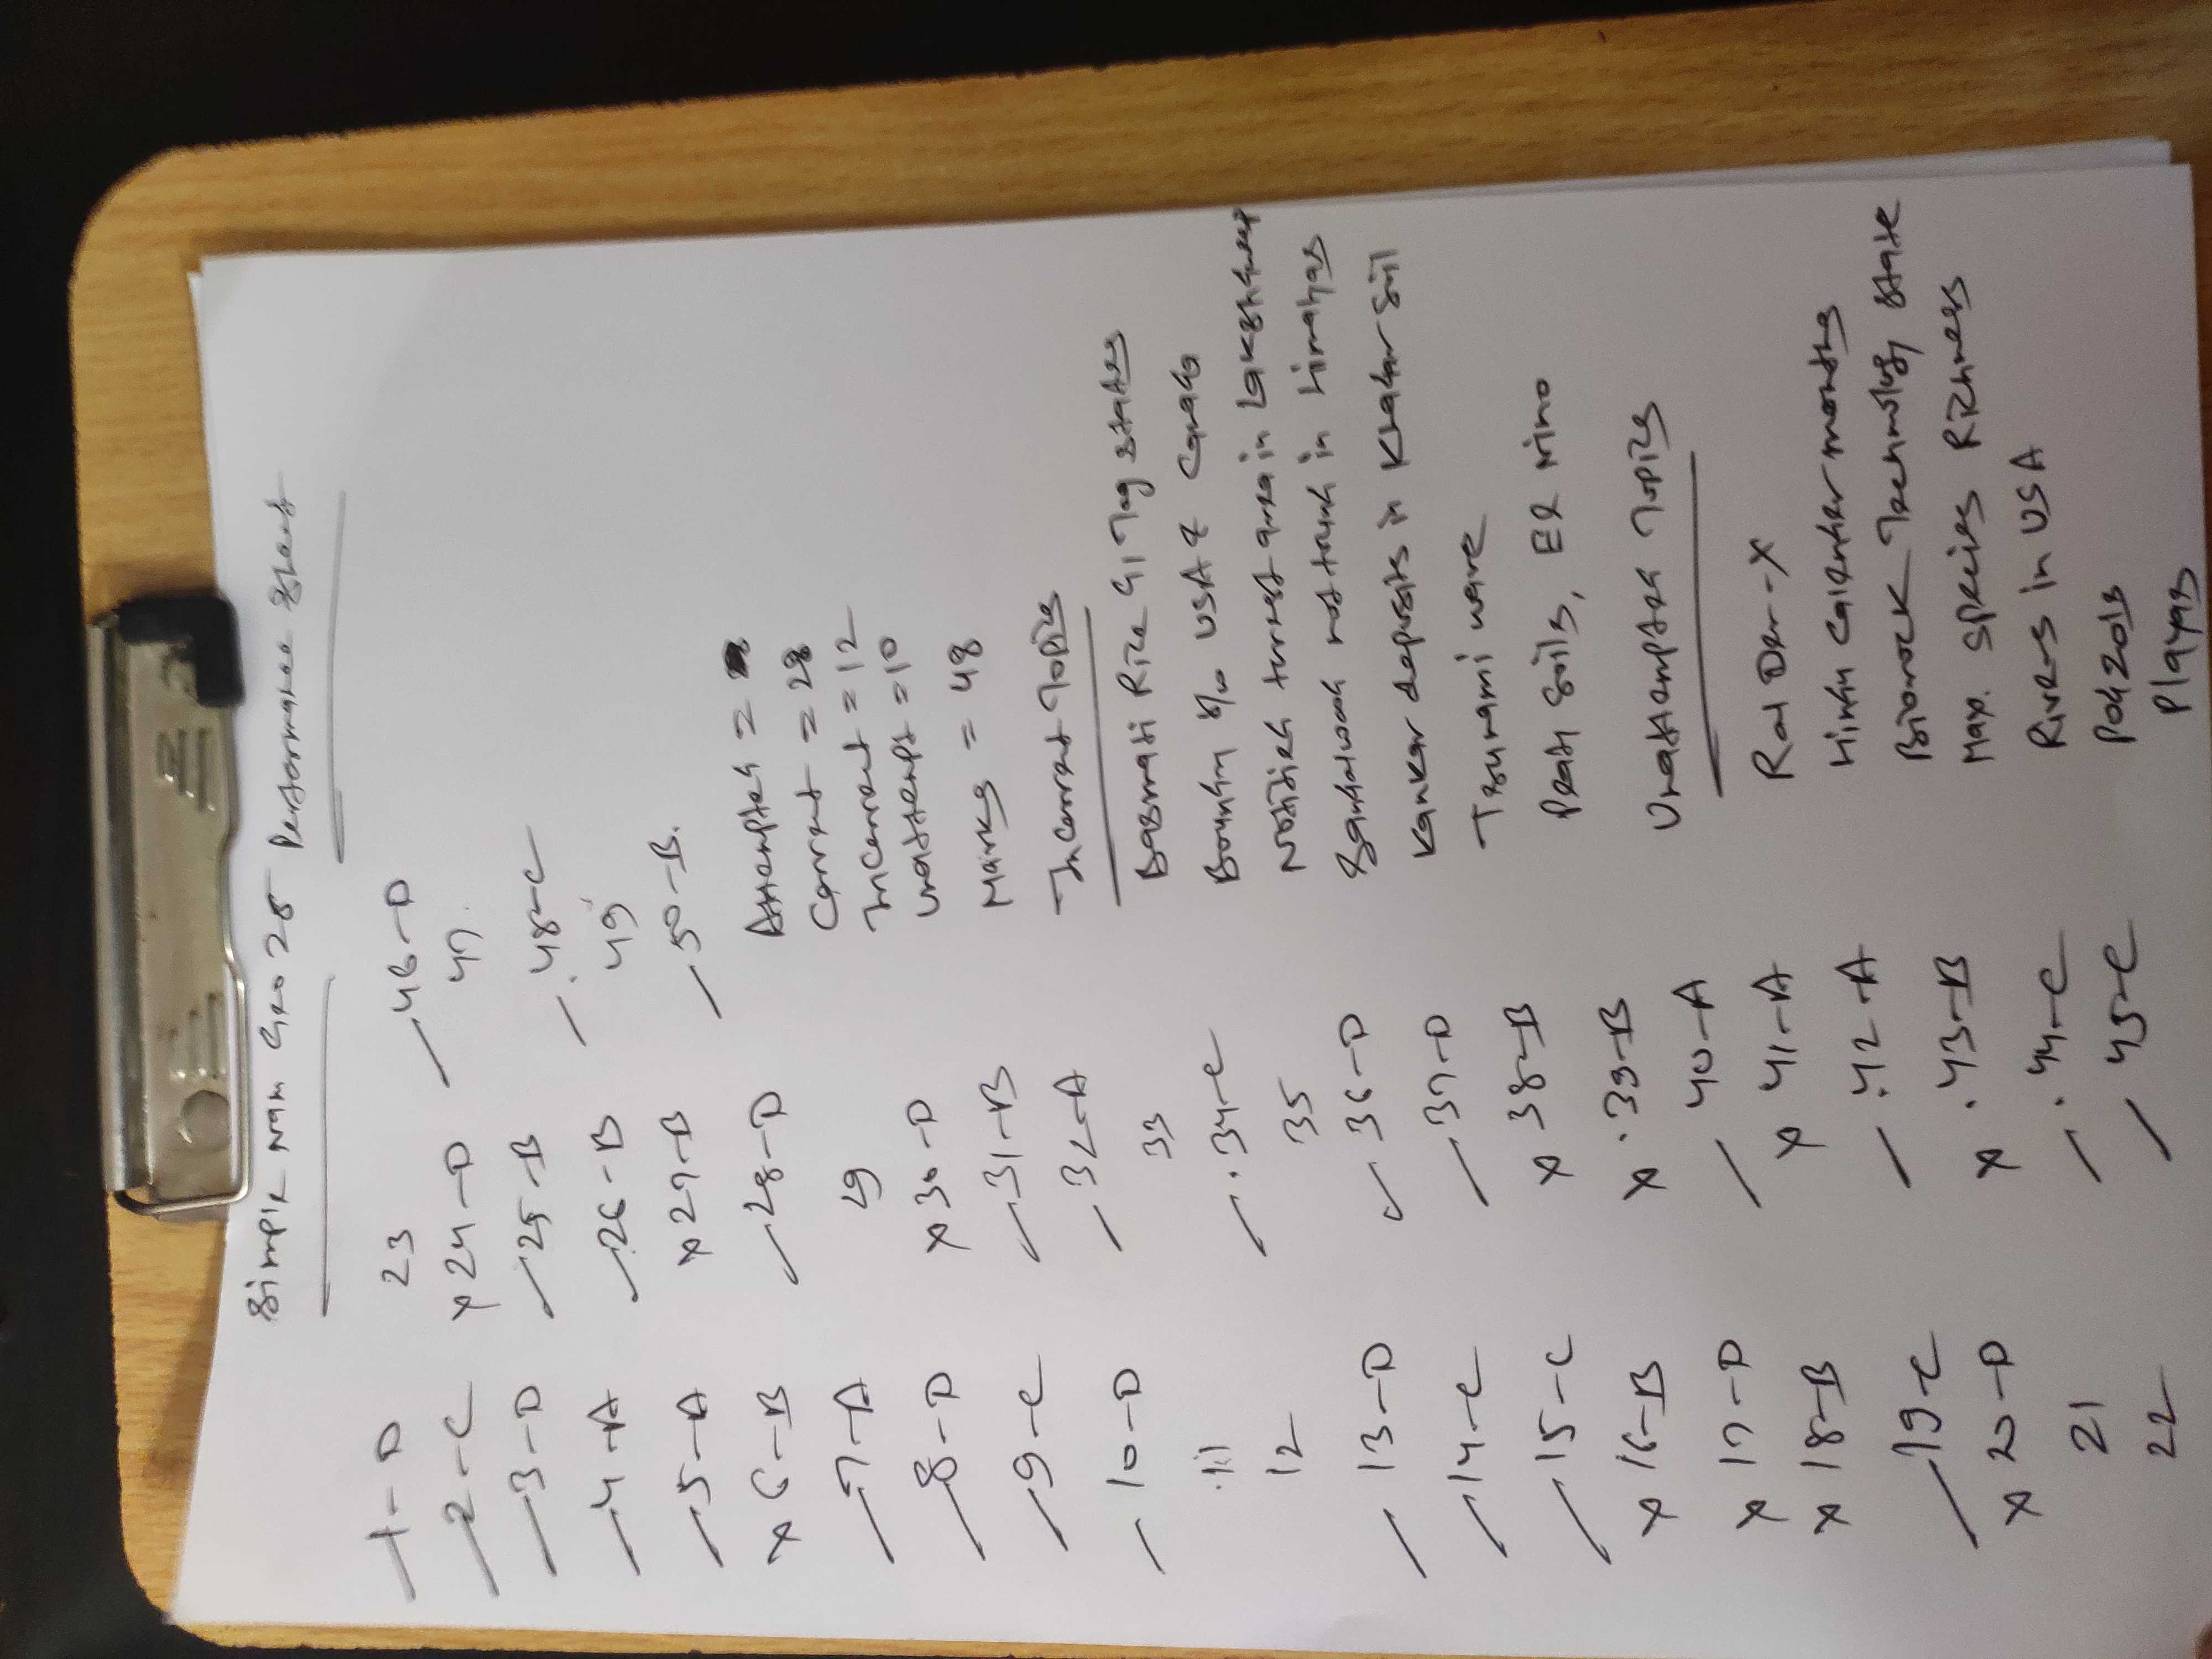 Simple Nah Geo 25 Performance Sheet
1-D
2-C
3-D
4-A
5-A
x 6-B
7-A
8-D
9-C
10-D
11
12
13-D
14-C
15-C
x 16-B
x 17-D
x 18-B
19-C
x 20-D
21
22
23
x 24-D
25-B
26-B
x 27-B
28-D
29
x 30-D
31-B
32-A
33
34-C
35
36-D
37-D
x 38-B
x 39-B
40-A
x 41-A
42-A
x 43-B
44-C
45-C
46-D
47.
48-C
49
50-B.
Attempted =
Correct = 28
Incorrect = 12
Unattempt = 10
Marks = 48
Incorrect Topics
Basmati Rice GI Tag States
Boundry b/w USA & Canada
Notified forest area in Lakshdweep
Sandalwood not found in Himahas
Kankar deposits in Khadar Soil
Tsunami wave
Peat Soils, El Nino
Unattempted Topics
Rat Der-X
Hindu Calender months
Biorock Technology State
Max. Species Richness
Rivers in USA
Podzols
Playas